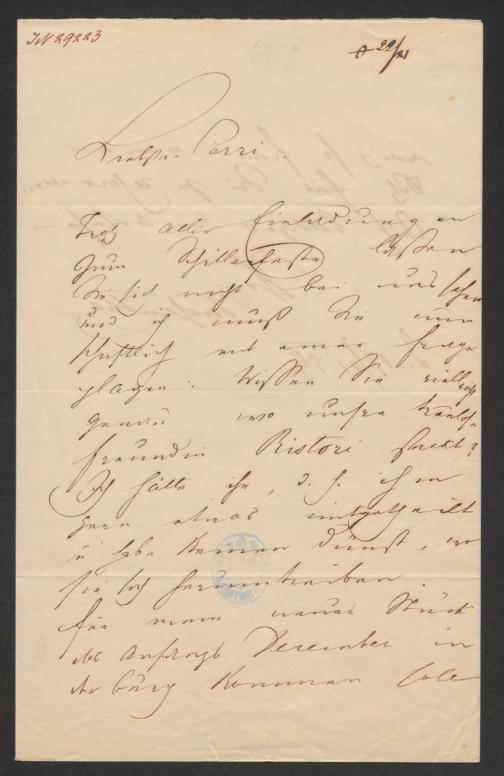 IN 29223
Liebster Cerri.
Trotz aller Einladungen
zum Schillerfeste lassen
Sie sich nicht bei uns sehen
und ich muß Sie nun
schriftlich mit einer Frage
plagen: Wissen Sie vielleicht
genau wo unsre treulose
Freundin Ristori steckt?
Ich hätte ihr, d. h. ihnen
gern etwas mitgetheilt
u habe keinen Dunst, wo
sie sich herumtreiben.
Für mein neues Stück
das Anfangs Dezember in
der Burg kommen soll